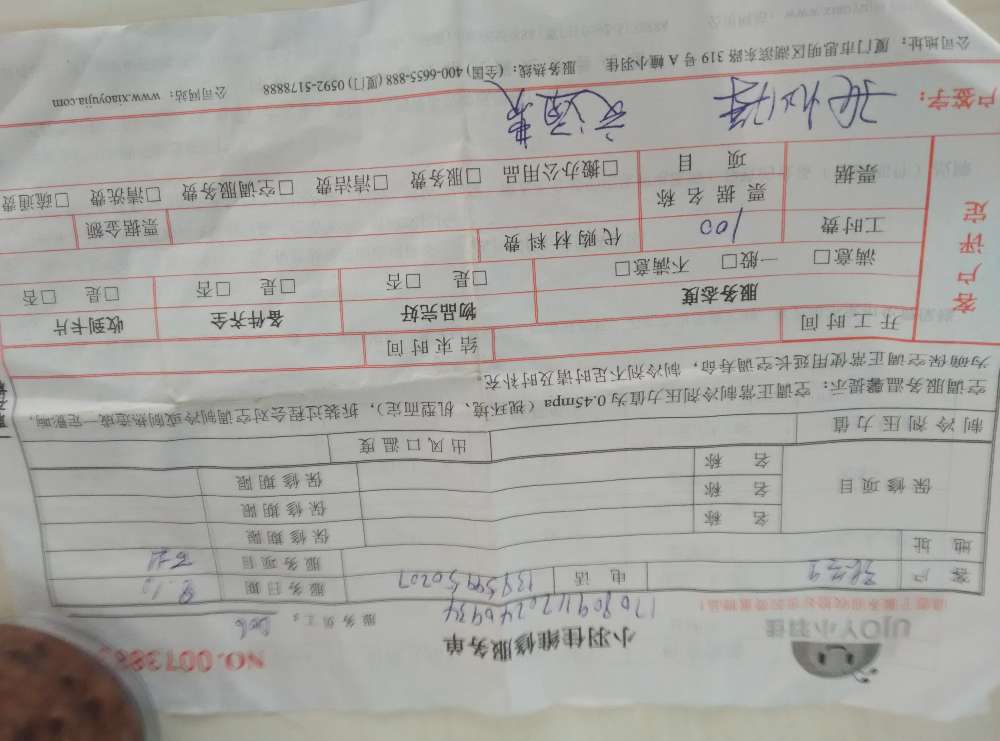 UJOY小羽佳
小羽佳维修服务单
NO.0073883
请您于服务前收妥您的贵重物品！
服务员工：
客户
电话 13959950207
服务日期 9.10
地址
服务项目
保修项目
名称
保修期限
名称
保修期限
名称
保修期限
制冷剂压力值
出风口温度
空调服务温馨提示：空调正常制冷剂压力值为0.45mpa（视环境、机型而定），拆装过程会对空调制冷或制热造成一定影响，
为确保空调正常使用延长空调寿命，制冷剂不足时请及时补充。
开工时间
结束时间
客户评定
服务态度
物品完好
备件齐全
收到卡片
满意□ 一般□ 不满意□
□是 □否
□是 □否
□是 □否
工时费 100
代购材料费
票据金额
票据
票据名称
项目
□搬办公用品 □服务费 □清洁费 □空调服务费 □清洗费 □疏通费
户签字：
公司地址：厦门市思明区湖滨东路319号A幢小羽佳 服务热线：(全国) 400-6655-888 (厦门) 0592-5178888 公司网站：www.xiaoyujia.com